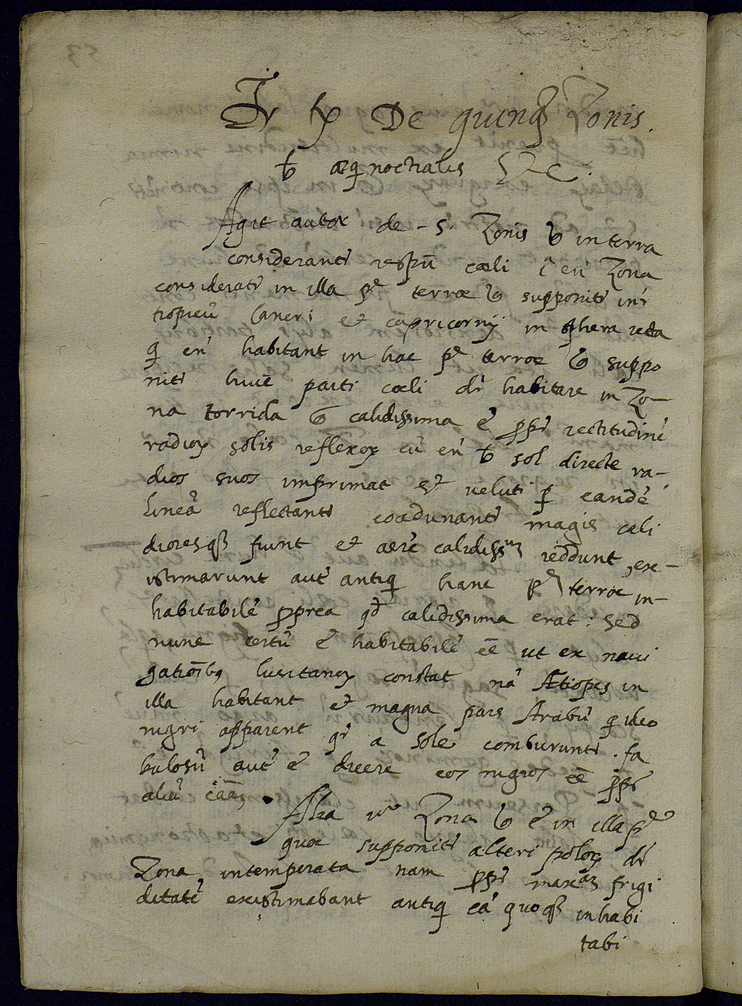 De quinq Zonis.
æqnoctialis &c.
Agit autor de .5. Zonis in terra
considerant respū cœli en Zona
considerat in illa pe terræ supponit int
tropicū Cancri et capricornij in sphera recta
q en habitant in hac pe terræ suppo
nit huic parti cœli dr habitare in Zo-
na torrida calidissima ē rectitudinē
radioꝝ solis reflexoꝝ cū en sol directe ra-
dios suos imprimat et veluti p eandē
lineā reflectant coadunant magis cali
dioresq fiunt et aerē calidissum reddunt, ex-
istimarunt aut antiq hanc pe terræ in-
habitabilē pprea qd calidissima erat: sed
nunc certū ē habitabilē eē ut ex navi
gationibq lusitanoꝝ constat nā Ætiopes in
illa habitant et magna pars Arabū q ideo
nigri apparent qr a sole comburunt. fa
bulosū aut ē dicere eos nigros eē ppr
aliā cāā.
Alia Zona ē in illa pe
quæ supponit alteri poloꝝ dr
Zona intemperata nam ppr maxam frigi
ditatē existimabant antiq eā quoq inhabi
tabi